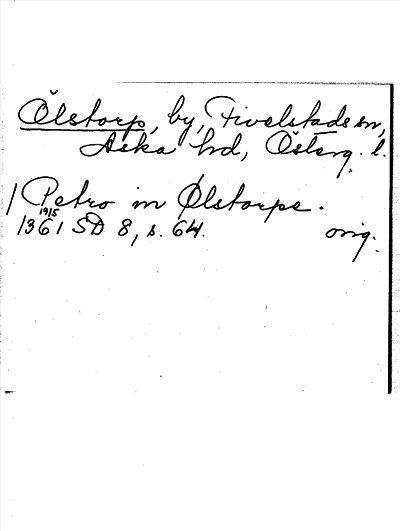 Ölstorp, by, Fivelstads sn,
Aska hd, Österg. l.
/ Petro in Ølstorpe.
1361 19/5 SD 8, s. 64. orig.